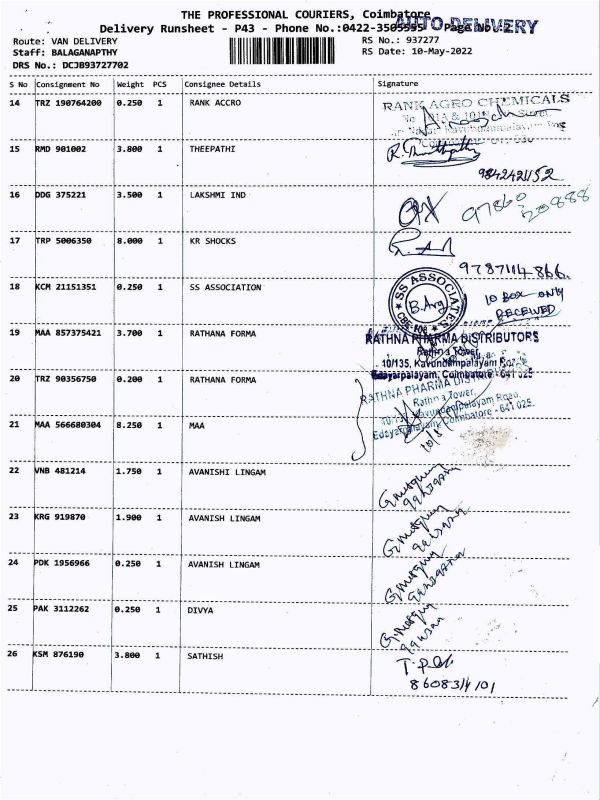 THE PROFESSIONAL COURIERS, Coimbatore
AUTO DELIVERY
Delivery Runsheet - P43 - Phone No.:0422-3505555 Page No.:2
Route: VAN DELIVERY RS No.: 937277
Staff: BALAGANAPTHY RS Date: 10-May-2022
DRS No.: DCJB93727702
S No Consignment No Weight PCS Consignee Details Signature
14 TRZ 190764200 0.250 1 RANK ACCRO
RANK AGRO CHEMICALS
15 RMD 901002 3.800 1 THEEPATHI
9842421152
16 DDG 375221 3.500 1 LAKSHMI IND
97860 20888
17 TRP 5006350 8.000 1 KR SHOCKS
9787114866.
18 KCM 21151351 0.250 1 SS ASSOCIATION
SS ASSOCIATES
10 BOX ONLY
RECEIVED
19 MAA 857375421 3.700 1 RATHANA FORMA
RATHNA PHARMA DISTRIBUTORS
Rathna Tower,
10/135, Kavundampalayam Road,
Edayarpalayam, Coimbatore - 641 025
20 TRZ 90356750 0.200 1 RATHANA FORMA
RATHNA PHARMA DISTRIBUTORS
Rathna Tower,
10/135, Kavundampalayam Road,
Edayarpalayam, Coimbatore - 641 025.
21 MAA 566680304 8.250 1 MAA
22 VNB 481214 1.750 1 AVANISHI LINGAM
23 KRG 919870 1.900 1 AVANISH LINGAM
24 PDK 1956966 0.250 1 AVANISH LINGAM
25 PAK 3112262 0.250 1 DIVYA
26 KSM 876190 3.800 1 SATHISH
8608314101